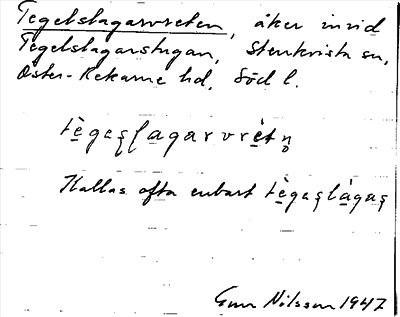 Tegelslagarvreten, åker invid
Tegelslagarstugan, Stenkvista sn,
Öster-Rekarne hd, Södl.
tègeşlagarvrètn̥
Kallas ofta enbart tègeşlàgaş
Gun Nilsson 1947